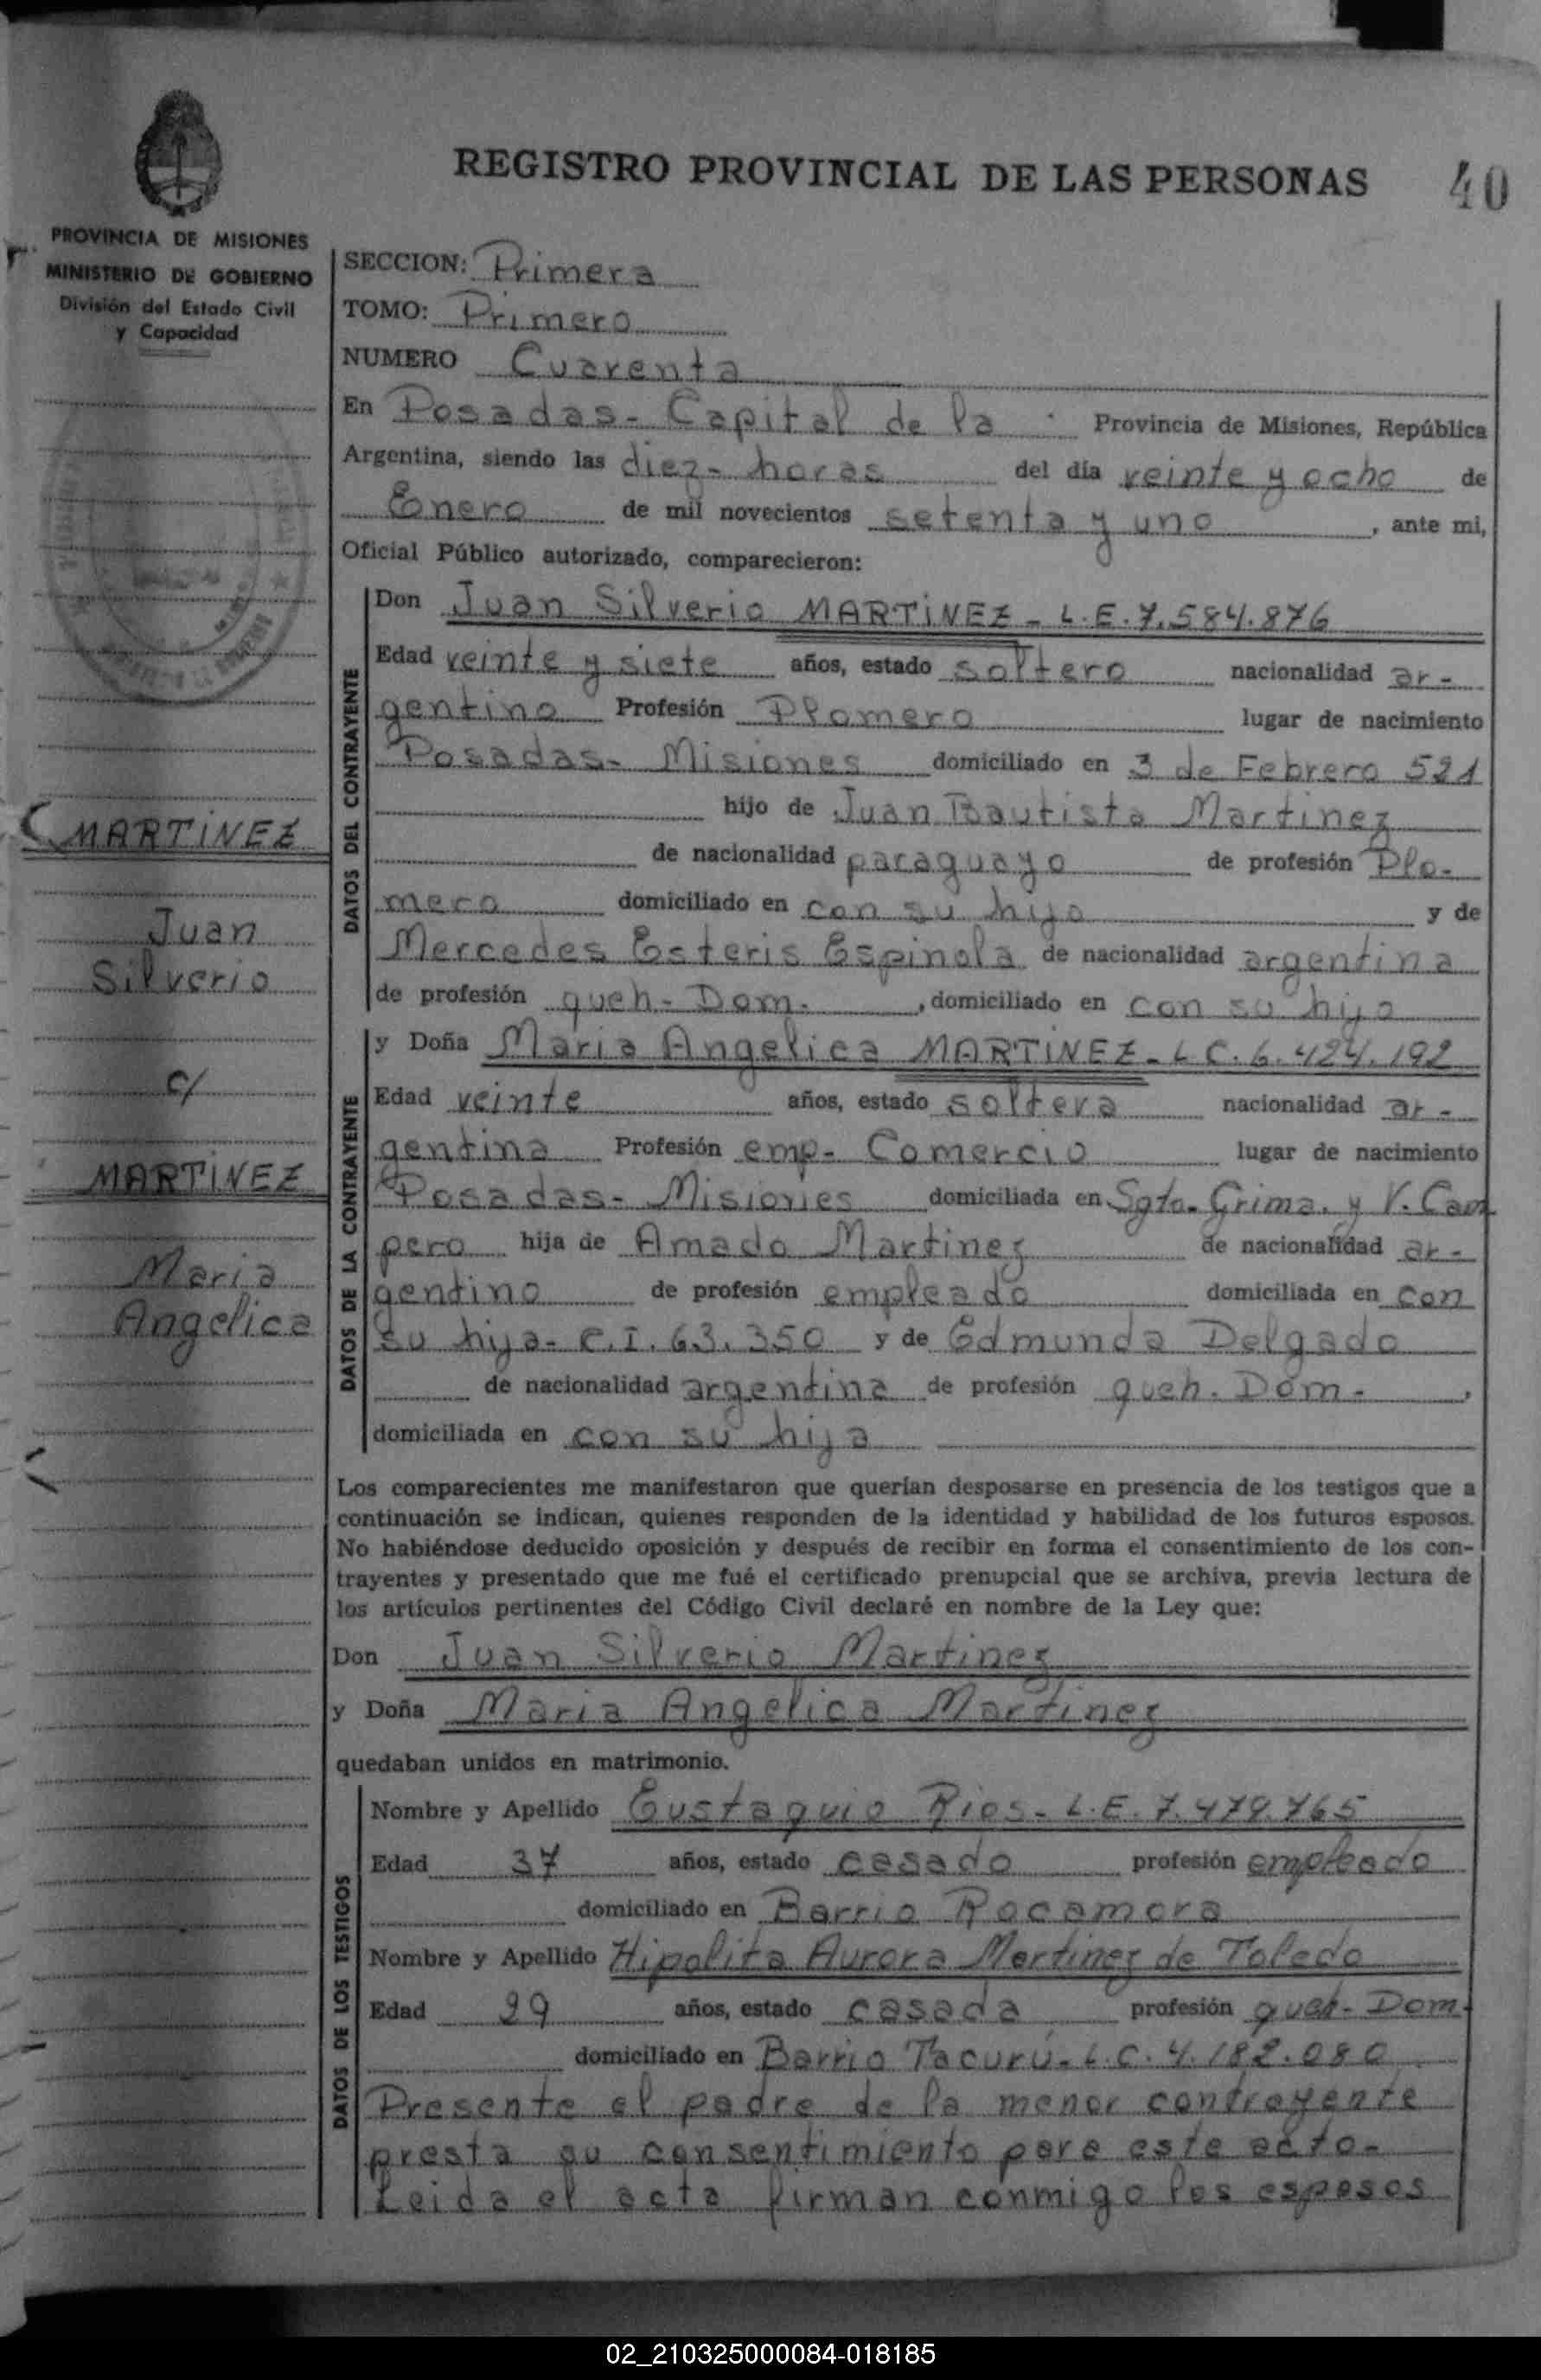 REGISTRO PROVINCIAL DE LAS PERSONAS 40
PROVINCIA DE MISIONES
MINISTERIO DE GOBIERNO
División del Estado Civil
y Capacidad
MARTINEZ
Juan
Silverio
c/
MARTINEZ
Maria
Angelica
SECCION: Primera
TOMO: Primero
NUMERO Cuarenta
En Posadas - Capital de la Provincia de Misiones, República
Argentina, siendo las diez - horas del día veinte y ocho de
Enero de mil novecientos setenta y uno, ante mi,
Oficial Público autorizado, comparecieron:
DATOS DEL CONTRAYENTE
Don Juan Silverio MARTINEZ - L.E. 7.584.876
Edad veinte y siete años, estado soltero nacionalidad ar-
gentino Profesión Plomero lugar de nacimiento
Posadas - Misiones domiciliado en 3 de Febrero 521
hijo de Juan Bautista Martinez
de nacionalidad paraguayo de profesión Plo-
mero domiciliado en con su hijo y de
Mercedes Esteris Espinola de nacionalidad argentina
de profesión queh - Dom. , domiciliado en con su hijo
DATOS DE LA CONTRAYENTE
y Doña Maria Angelica MARTINEZ - L C. 6.424.192
Edad veinte años, estado soltera nacionalidad ar-
gentina Profesión emp - Comercio lugar de nacimiento
Posadas - Misiones domiciliada en Sgto. Grima. y V. Cam
pero hija de Amado Martinez de nacionalidad ar-
gentino de profesión empleado domiciliada en con
su hija - C.I. 63.350 y de Edmunda Delgado
de nacionalidad argentina de profesión queh. Dom - ,
domiciliada en con su hija
Los comparecientes me manifestaron que querían desposarse en presencia de los testigos que a
continuación se indican, quienes responden de la identidad y habilidad de los futuros esposos.
No habiéndose deducido oposición y después de recibir en forma el consentimiento de los con-
trayentes y presentado que me fué el certificado prenupcial que se archiva, previa lectura de
los artículos pertinentes del Código Civil declaré en nombre de la Ley que:
Don Juan Silverio Martinez
y Doña Maria Angelica Martinez
quedaban unidos en matrimonio.
DATOS DE LOS TESTIGOS
Nombre y Apellido Eustaquio Rios - L.E. 7.479.765
Edad 37 años, estado casado profesión empleado
domiciliado en Barrio Rocamora
Nombre y Apellido Hipolita Aurora Martinez de Toledo
Edad 29 años, estado casada profesión queh - Dom.
domiciliado en Barrio Tacurú - L.C. 4.182.080
Presente el padre de la menor contrayente
presta su consentimiento para este acto -
Leida el acta firman conmigo los esposos
02_210325000084-018185